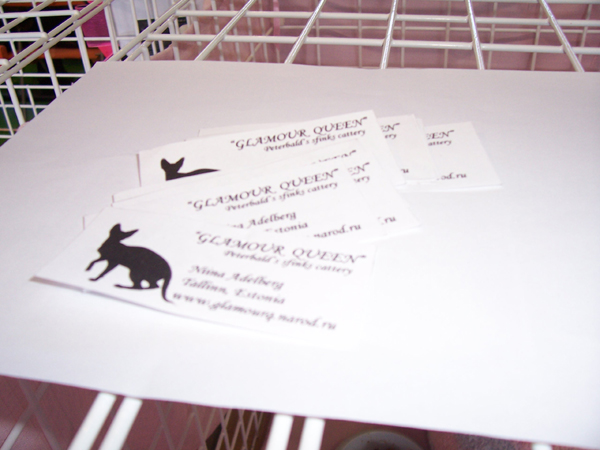 "GLAMOUR QUEEN"
Peterbald's sfinks cattery
"GLAMOUR QUEEN"
Peterbald's sfinks cattery
Adelberg
Estonia
narod.ru
"GLAMOUR QUEEN"
Peterbald's sfinks cattery
Niina Adelberg
Tallinn, Estonia
www.glamourq.narod.ru